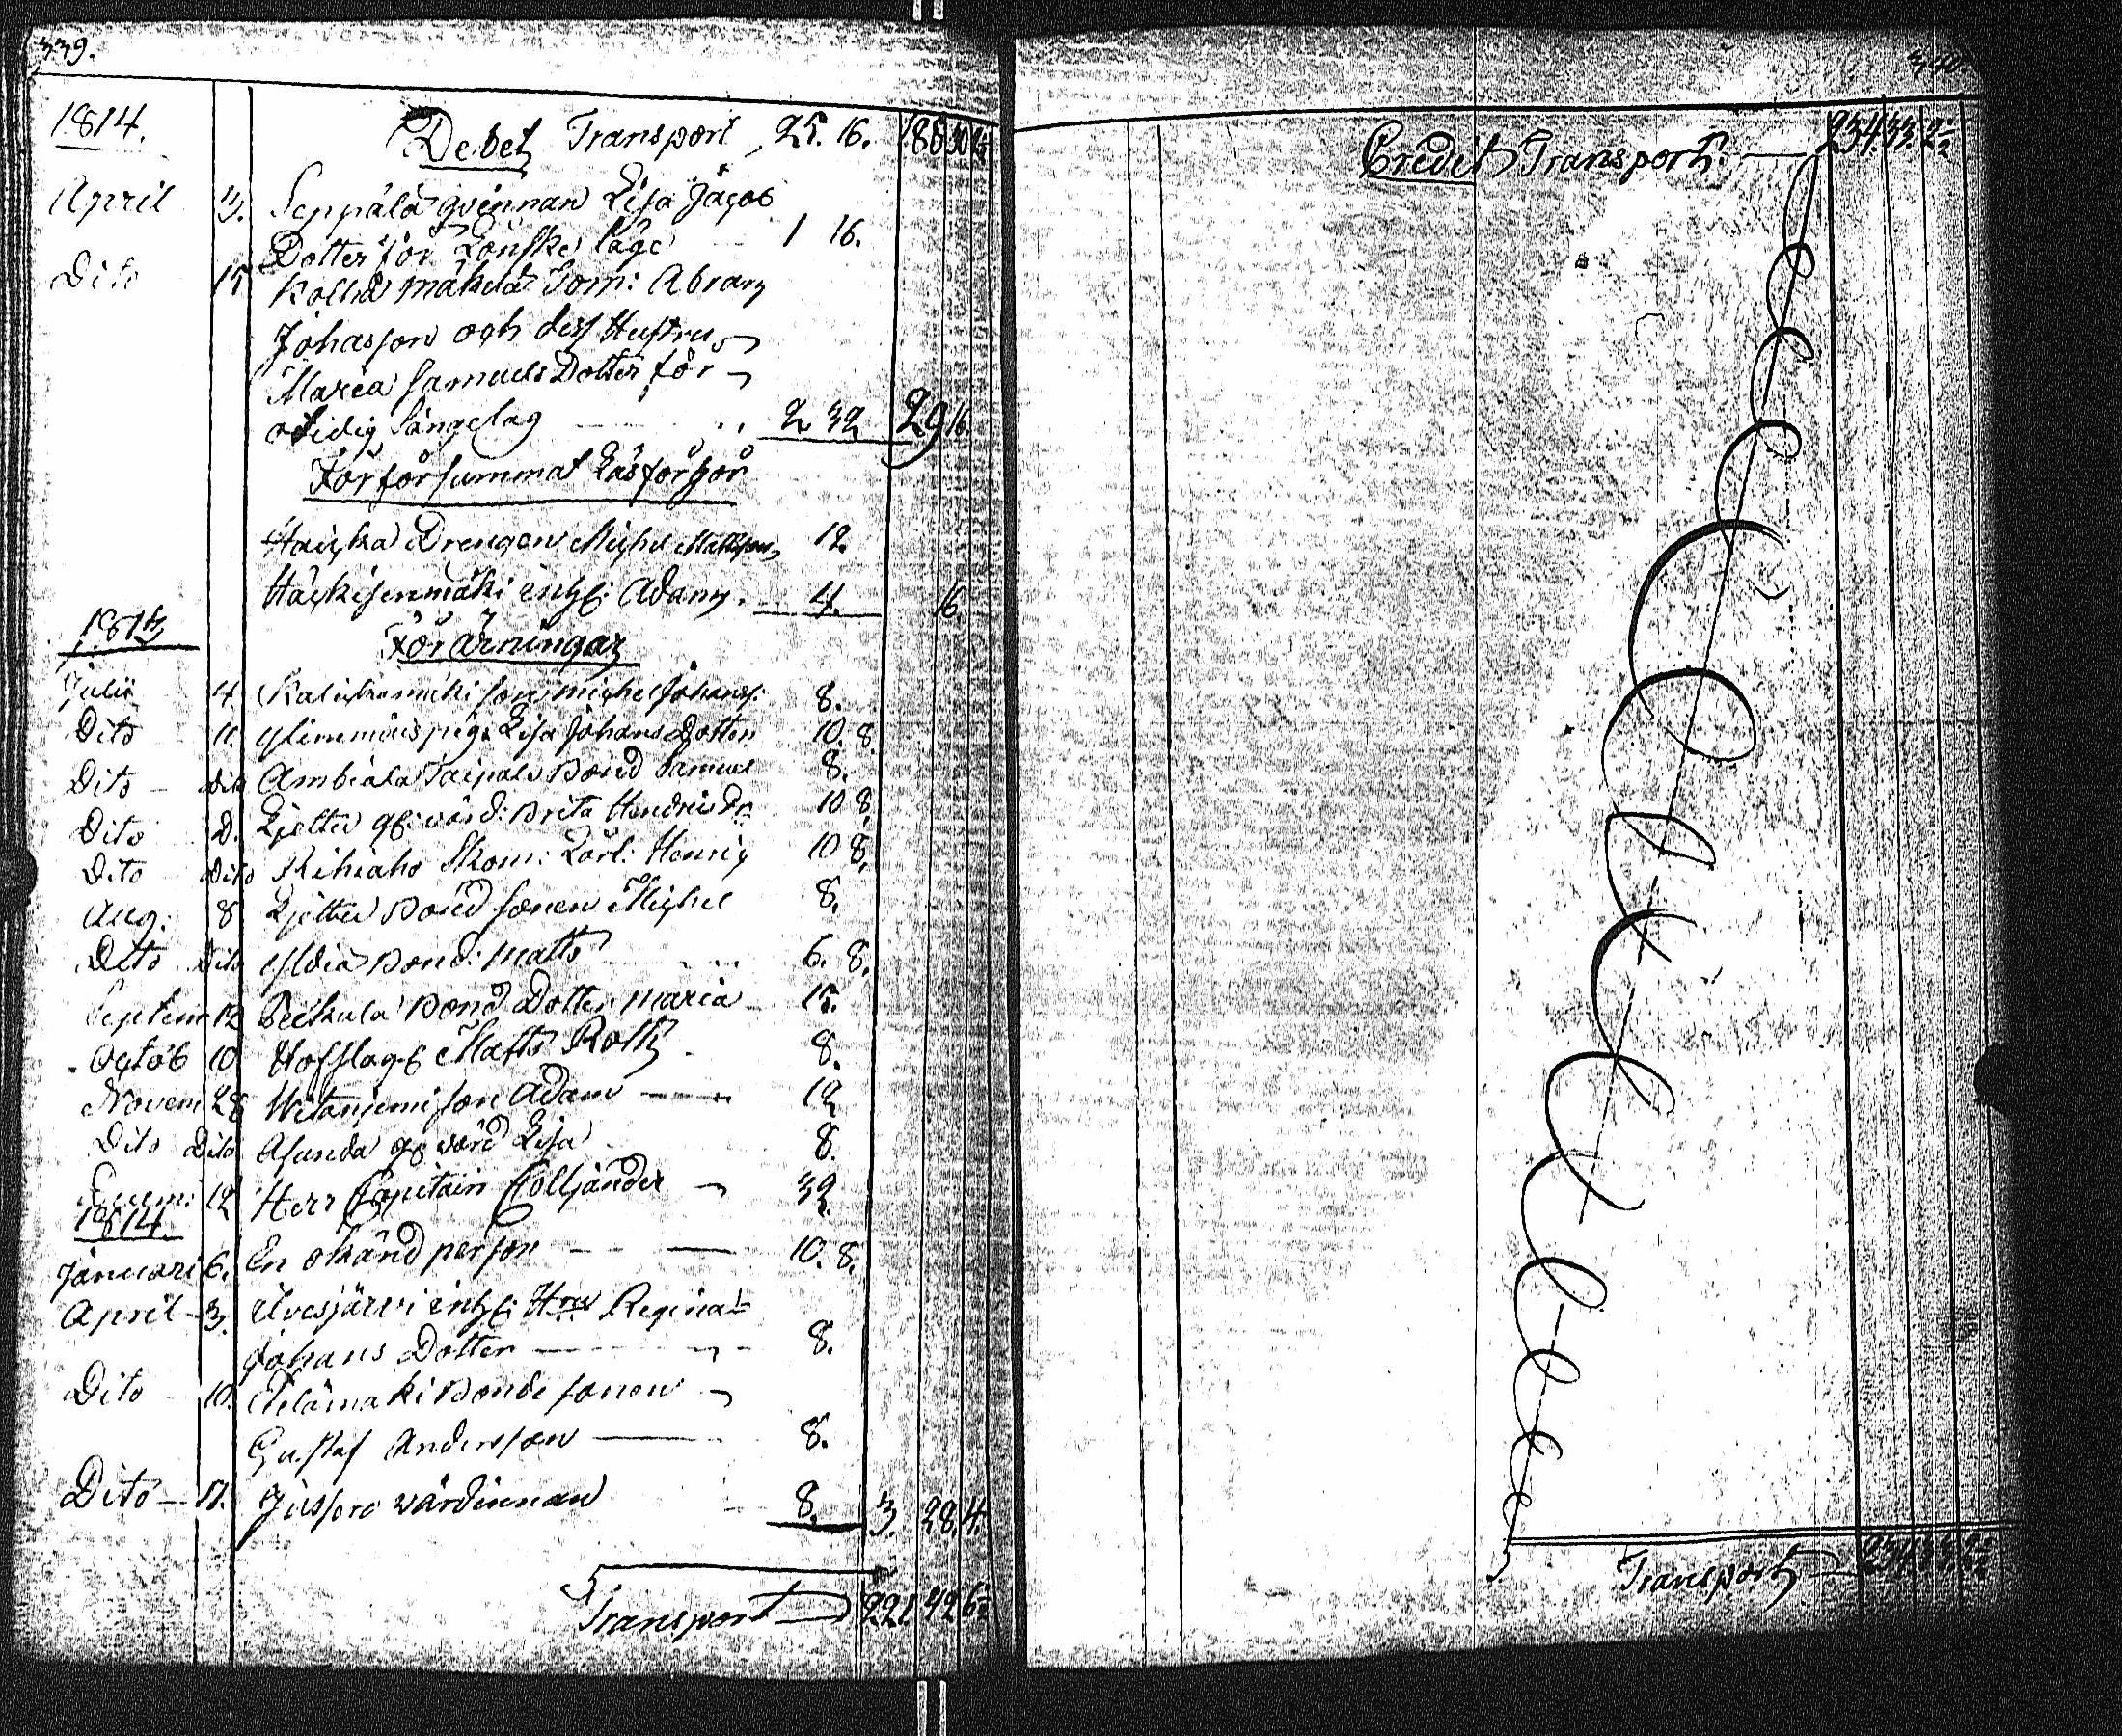 339.
1814. Debet Transport 25. 16.
April 3. Seppälä qvinnan Lisa Jacobs
Dotter för Lönske läge 1 16.
Dito 15 Kolha mäkelä Torn: Abram
Johasson och dess Hustru
Maria Samuels Dotter för
otidig Sängelag 2 32 29 16.
För försummat Läsförhör
Haicka Drengen Michel Mattsson 12.
Häckisenmäki inhs: Adam. 4. 16.
1813
Föräringar
Julii 4 son michel Johanss: 8.
Dito 11. piga Lisa Johans Dotter 10. 8.
Dito Dito Ambiala Taipale Bond Samuel 8.
Dito D. wärd: Brita Hendrics Dr 10 8.
Dito Dito Riihiaho Skom: Lärl: Henric 10 8.
Aug. 8 Bond sonen Michel 8.
Dito Dito Bond: Matts 6. 8.
Septem 12 Bond Dotter Maria 15.
Octob 10 Hofslag: Matts Roth 8.
Novem 28 son Adam 12
Dito Dito Asunda wärd Lisa 8.
12 Herr Capitain Colljander 32.
1814.
Januari 6. En okänd person 10. 8.
April 3. Ilvesjärvi inhs: Hru Regina
Johans Dotter 8.
Dito 10. Bonde sonen
Gustaf Andersson 8.
Dito 17. Jussero wärdinnan 8. 3. 28. 4.
Transport 221 42 6½
Credit Transport: 234. 33. 2½
Transport 234.